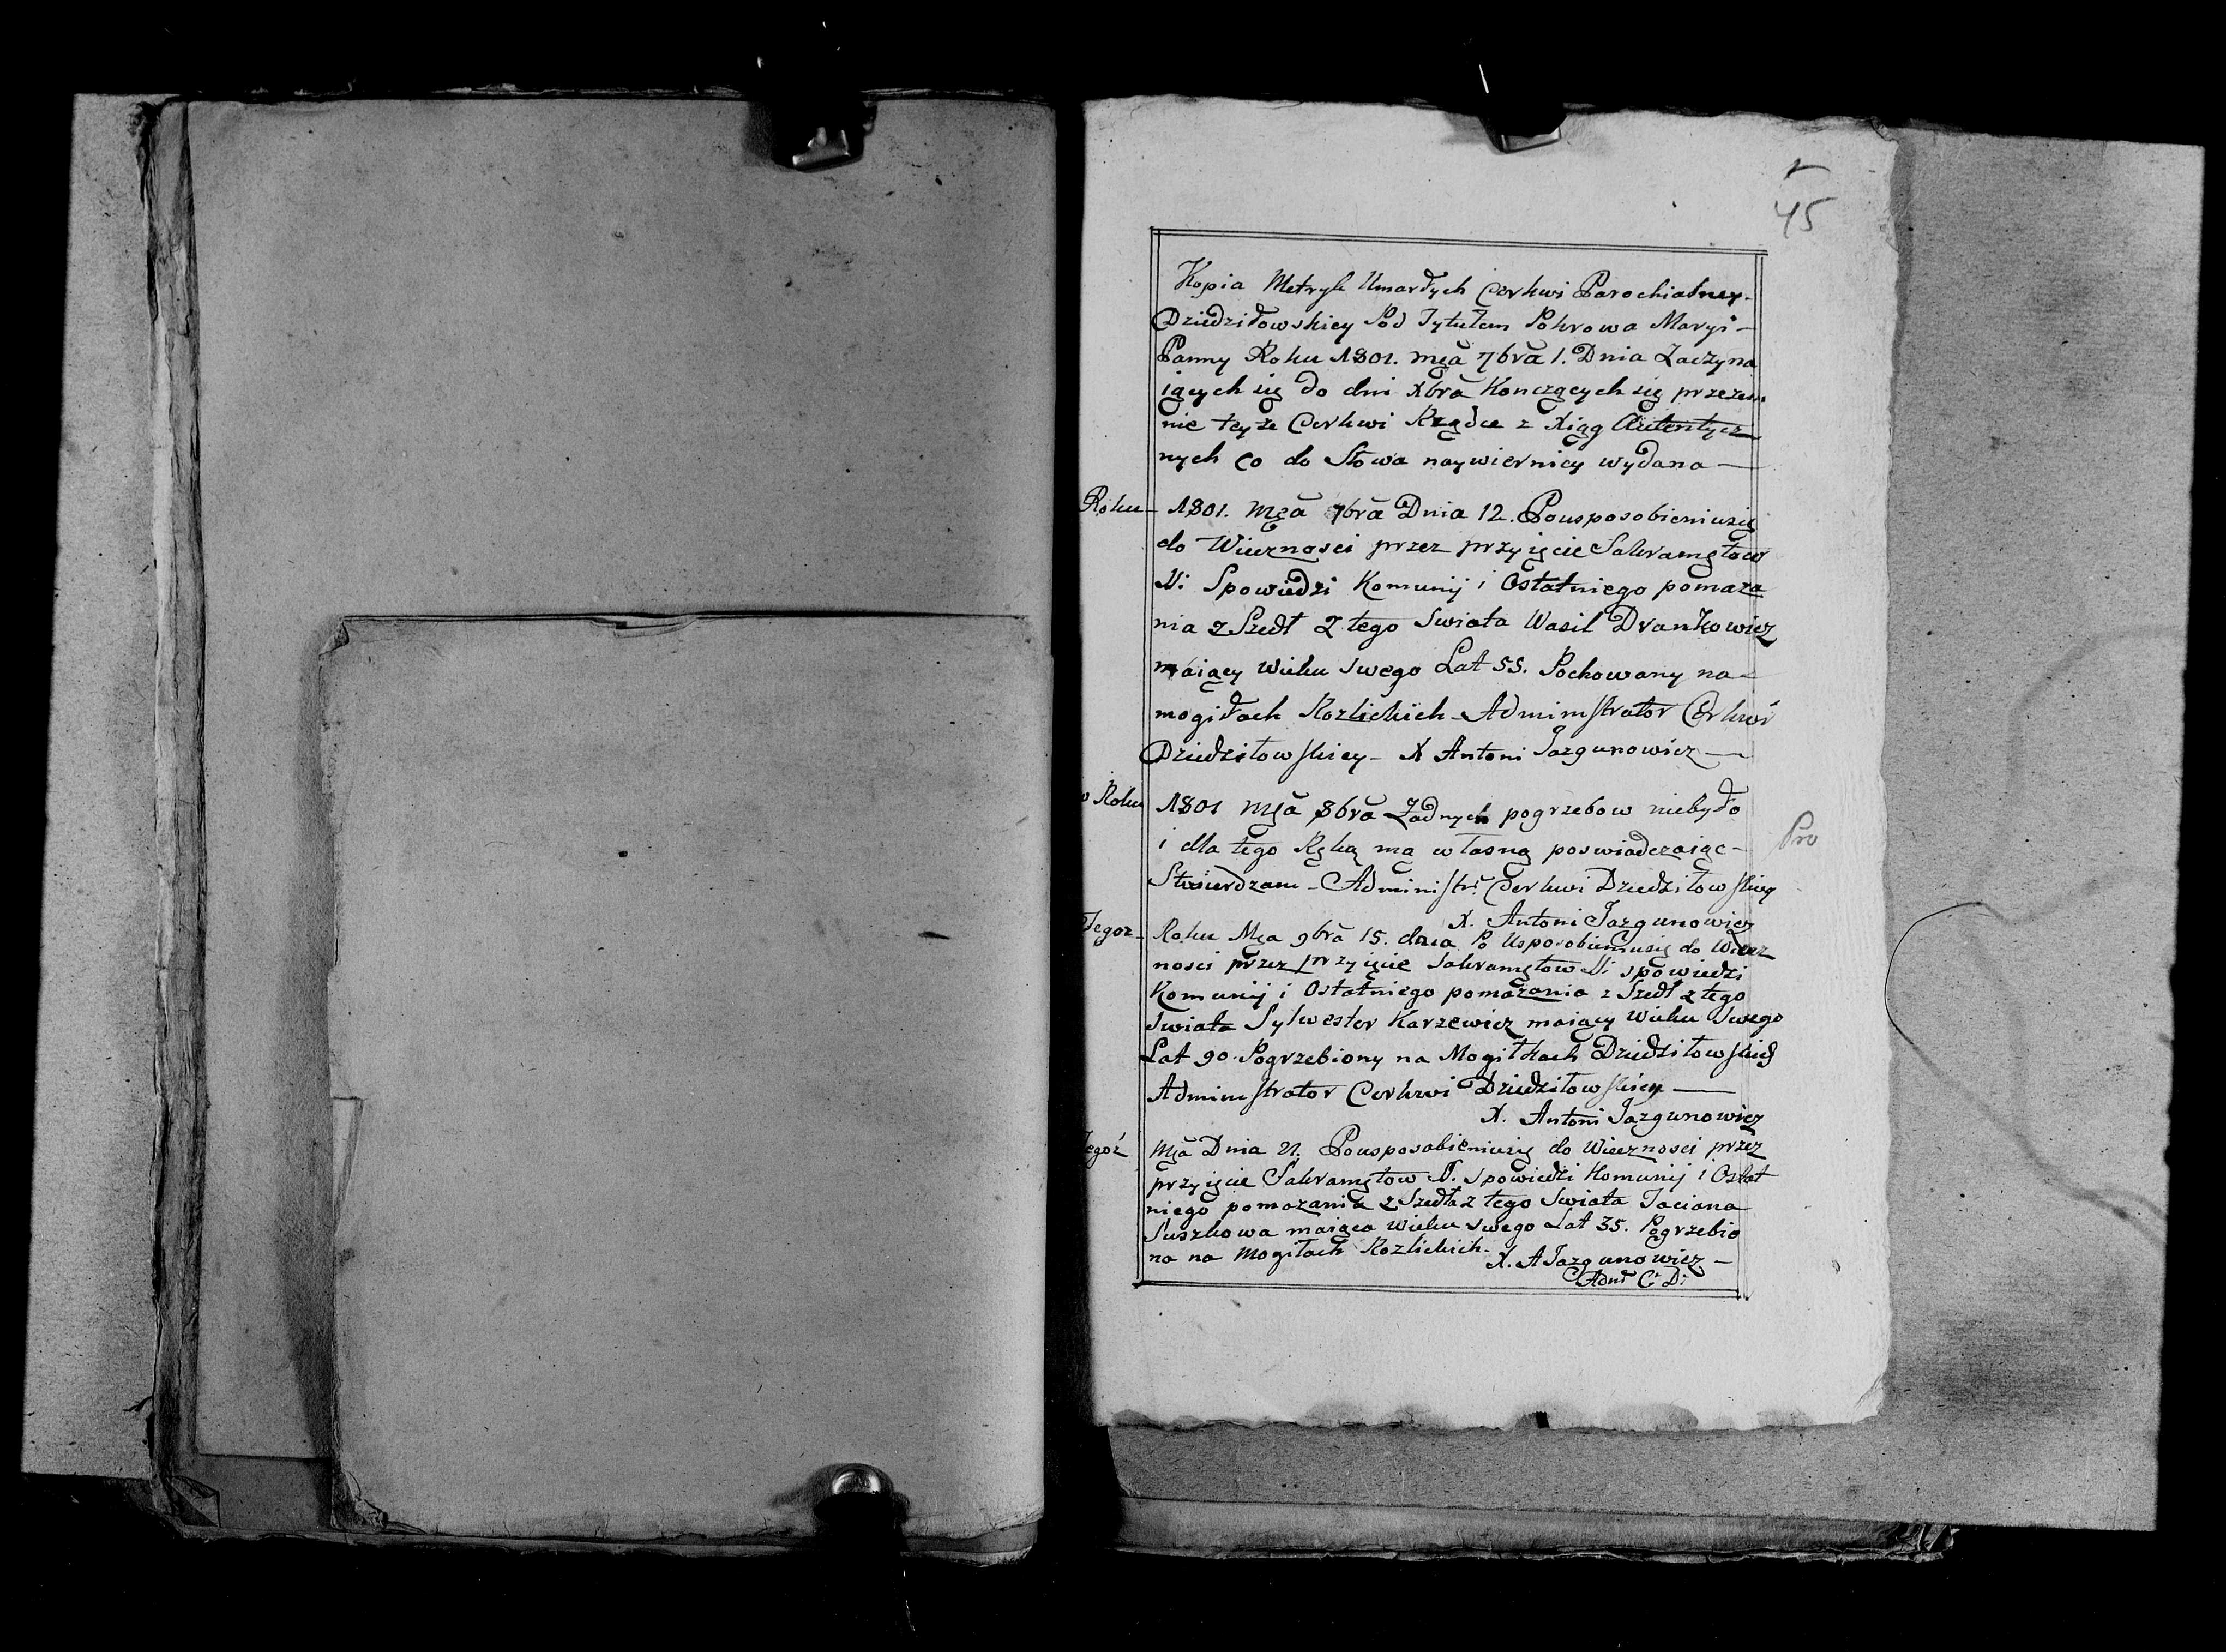 45
Kopia Metryk Umarłych Cerkwi Parochialney
Dziedziłowskiey Pod Tytułem Pokrowa Maryi –
Panny Roku 1801. mca 7bra 1. Dnia Zaczyna
iących się do dni Xbra Konczących się przezem
nie teyże Cerkwi Rządce z Xiąg Autentycz
nych co do Słowa naywierniey wydana —
Roku – 1801. mca 7bra Dnia 12. Pousposobieniusię
do Wiecznosci przez przyięcie Sakramętow
SS: Spowiedzi Komunij i Ostatniego pomaza
nia z Szedł z tego Swiata Wasil Drankowicz
maiący wieku swego Lat 55. Pochowany na –
mogiłach Kozlickich – Administrator Cerkwi
Dziedziłowskiey – X Antoni Jazgunowicz —
Roku 1801 mca 8bra Żadnych pogrzebow niebyło
i dla tego Ręką mą własną poswiadczaiąc –
Stwierdzam – Administr: Cerkwi Dziedziłowskiey
X. Antoni Jazgunowicz
Pro
Tegoz – Roku Mca 9bra 15. dnia Po Usposobieniusię do Wiecz
nosci przez przyięcie Sakramętow SS: spowiedzi
Komunij i Ostatniego pomazania z Szedł z tego
Swiata Sylwester Karzewicz maiący wieku Swego
Lat 90. Pogrzebiony na Mogiłkach Dziedziłowskich
Administrator Cerkwi Dziedziłowskiey —
X. Antoni Jazgunowicz
Tegoż mca Dnia 21. Pousposobieniusię do Wiecznosci przez
przyięcie Sakramętow S. Spowiedzi Komunij i Ostat
niego pomazania z Szedła z tego Swiata Taciana
Suszkowa maiąca wieku swego Lat 35. Pogrzebio
na na Mogiłach Kozlickich –
X. A Jazgunowicz –
Adm C: D: